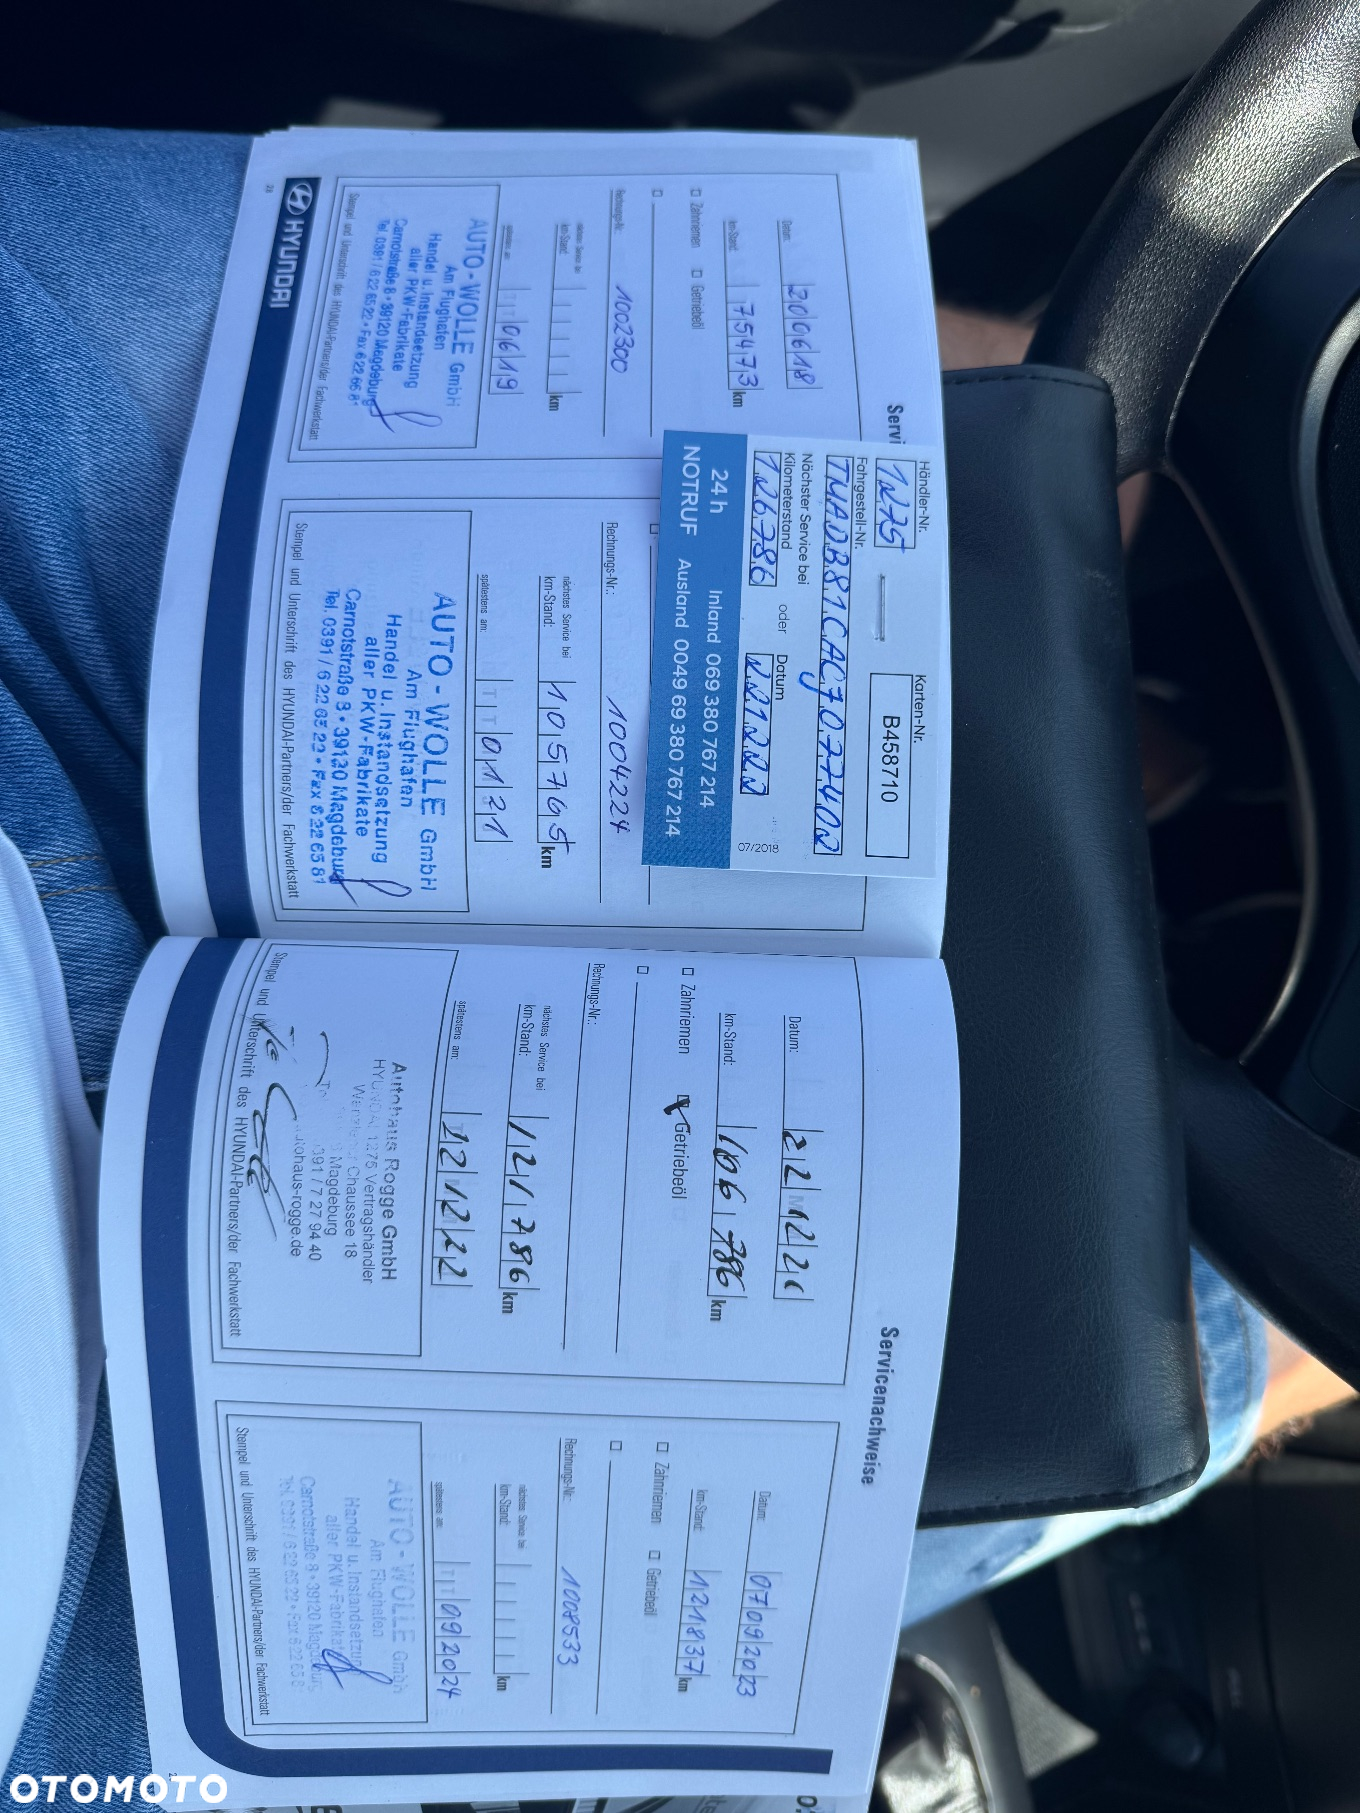 Servi
Datum: 200618
km-Stand: 75473 km
Zahnriemen Getriebeöl
Rechnungs-Nr.: 1002300
nächstes Service bei
km-Stand: km
spätestens am: TT0619
AUTO-WOLLE GmbH
Am Flughafen
Handel u. Instandsetzung
aller PKW-Fabrikate
Carnotstraße 8 • 39120 Magdeburg
Tel. 0391 / 6 22 65 22 • Fax 6 22 65 81
Stempel und Unterschrift des HYUNDAI-Partners/der Fachwerkstatt
HYUNDAI
28
Händler-Nr. Karten-Nr.
1275 B458710
Fahrgestell-Nr.
TMADB81CACJ077402
Nächster Service bei
Kilometerstand oder Datum
126786 221222
07/2018
24 h Inland 069 380 767 214
NOTRUF Ausland 0049 69 380 767 214
Rechnungs-Nr.: 1004224
nächstes Service bei
km-Stand: 105765 km
spätestens am: TT0121
AUTO-WOLLE GmbH
Am Flughafen
Handel u. Instandsetzung
aller PKW-Fabrikate
Carnotstraße 8 • 39120 Magdeburg
Tel. 0391 / 6 22 65 22 • Fax 6 22 65 81
Stempel und Unterschrift des HYUNDAI-Partners/der Fachwerkstatt
Servicenachweise
Datum:
km-Stand: 106786 km
Zahnriemen Getriebeöl
Rechnungs-Nr.:
nächstes Service bei
km-Stand: 121786 km
spätestens am: 121222
Autohaus Rogge GmbH
HYUNDAI 1275 Vertragshändler
Chaussee 18
Magdeburg
391 / 7 27 94 40
autohaus-rogge.de
Stempel und Unterschrift des HYUNDAI-Partners/der Fachwerkstatt
Datum: 07092023
km-Stand: 121837 km
Zahnriemen Getriebeöl
Rechnungs-Nr.: 1008533
nächstes Service bei
km-Stand: km
spätestens am: TT092024
AUTO-WOLLE GmbH
Am Flughafen
Handel u. Instandsetzung
aller PKW-Fabrikate
Carnotstraße 8 • 39120 Magdeburg
Tel. 0391 / 6 22 65 22 • Fax 6 22 65 81
Stempel und Unterschrift des HYUNDAI-Partners/der Fachwerkstatt
OTOMOTO